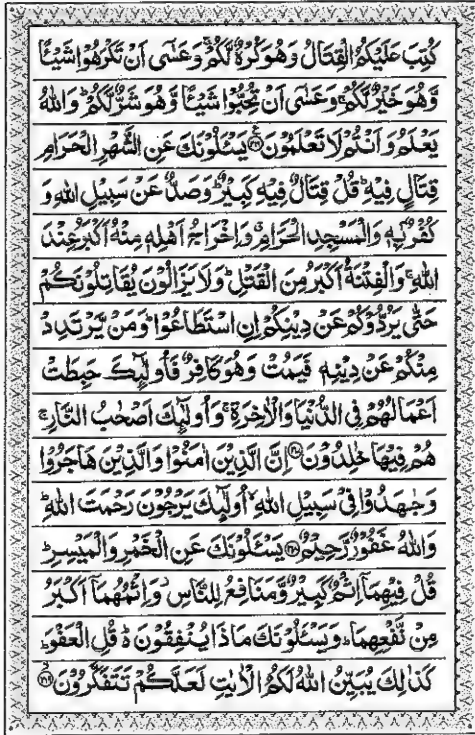 كُتِبَ عَلَيْكُمُ الْقِتَالُ وَهُوَ كُرْهٌ لَّكُمْ ۚ وَعَسٰۤى اَنْ تَكْرَهُوْا شَيْـًٔا
وَّهُوَ خَيْرٌ لَّكُمْ ۚ وَعَسٰۤى اَنْ تُحِبُّوْا شَيْـًٔا وَّهُوَ شَرٌّ لَّكُمْ ؕ وَاللّٰهُ
يَعْلَمُ وَاَنْتُمْ لَا تَعْلَمُوْنَ ﴿۲۱۶﴾ يَسْـَٔلُوْنَكَ عَنِ الشَّهْرِ الْحَرَامِ
قِتَالٍ فِيْهِ ؕ قُلْ قِتَالٌ فِيْهِ كَبِيْرٌ ؕ وَصَدٌّ عَنْ سَبِيْلِ اللّٰهِ وَ
كُفْرٌۢ بِهٖ وَالْمَسْجِدِ الْحَرَامِ ۗ وَاِخْرَاجُ اَهْلِهٖ مِنْهُ اَكْبَرُ عِنْدَ
اللّٰهِ ۚ وَالْفِتْنَةُ اَكْبَرُ مِنَ الْقَتْلِ ؕ وَلَا يَزَالُوْنَ يُقَاتِلُوْنَكُمْ
حَتّٰى يَرُدُّوْكُمْ عَنْ دِيْنِكُمْ اِنِ اسْتَطَاعُوْا ؕ وَمَنْ يَّرْتَدِدْ
مِنْكُمْ عَنْ دِيْنِهٖ فَيَمُتْ وَهُوَ كَافِرٌ فَاُولٰٓئِكَ حَبِطَتْ
اَعْمَالُهُمْ فِى الدُّنْيَا وَالْاٰخِرَةِ ۚ وَاُولٰٓئِكَ اَصْحٰبُ النَّارِ ۚ
هُمْ فِيْهَا خٰلِدُوْنَ ﴿۲۱۷﴾ اِنَّ الَّذِيْنَ اٰمَنُوْا وَالَّذِيْنَ هَاجَرُوْا
وَجٰهَدُوْا فِىْ سَبِيْلِ اللّٰهِ ۙ اُولٰٓئِكَ يَرْجُوْنَ رَحْمَتَ اللّٰهِ ؕ
وَاللّٰهُ غَفُوْرٌ رَّحِيْمٌ ﴿۲۱۸﴾ يَسْـَٔلُوْنَكَ عَنِ الْخَمْرِ وَالْمَيْسِرِ ؕ
قُلْ فِيْهِمَاۤ اِثْمٌ كَبِيْرٌ وَّمَنَافِعُ لِلنَّاسِ ؗ وَاِثْمُهُمَاۤ اَكْبَرُ
مِنْ نَّفْعِهِمَا ؕ وَيَسْـَٔلُوْنَكَ مَاذَا يُنْفِقُوْنَ ۬ؕ قُلِ الْعَفْوَ ؕ
كَذٰلِكَ يُبَيِّنُ اللّٰهُ لَكُمُ الْاٰيٰتِ لَعَلَّكُمْ تَتَفَكَّرُوْنَ ﴿۲۱۹﴾